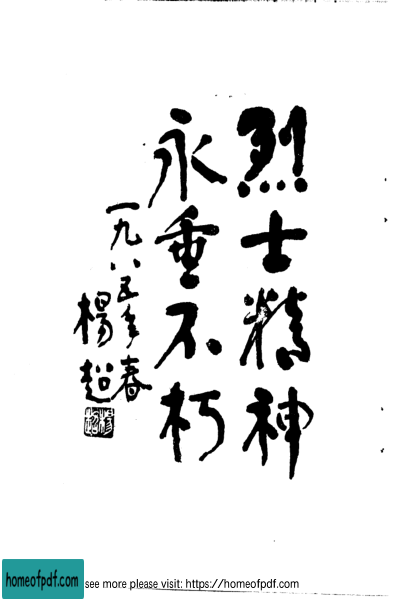 烈士精神
永垂不朽
一九八五年春
楊超
homeofpdf.com
see more please visit: https://homeofpdf.com